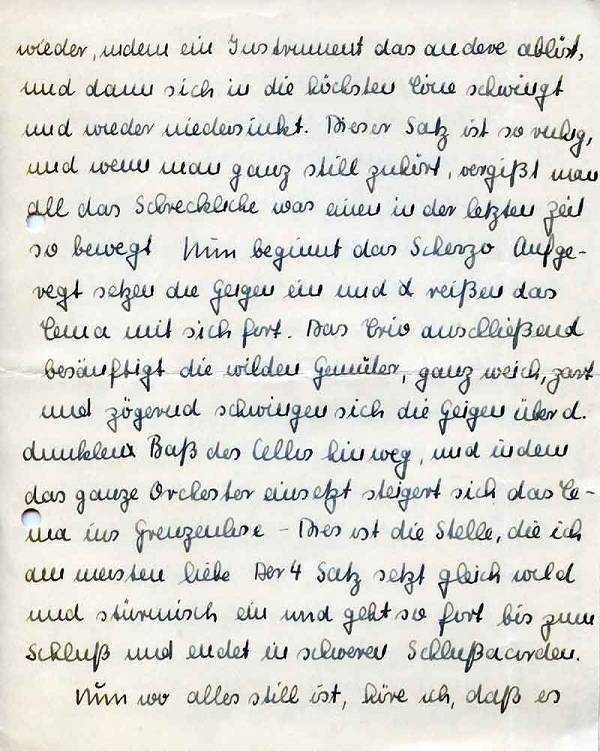 wieder, indem ein Instrument das andere ablöst,
und dann sich in die höchsten Töne schwingt
und wieder niedersinkt. Dieser Satz ist so ruhig,
und wenn man ganz still zuhört, vergißt man
all das Schreckliche was einen in der letzten Zeit
so bewegt Nun beginnt das Scherzo Aufge-
regt setzen die Geigen ein und reißen das
Tema mit sich fort. Das Trio anschließend
besänftigt die wilden Gemüter, ganz weich, zart
und zögernd schwingen sich die Geigen über d.
dunklen Baß des Cellis hinweg, und indem
das ganze Orchester einsetzt steigert sich das Te-
ma ins Grenzenlose – Dies ist die Stelle, die ich
am meisten liebe Der 4 Satz setzt gleich wild
und stürmisch ein und geht so fort bis zum
Schluß und endet in schweren Schlußacorden.
Nun wo alles still ist, höre ich, daß es